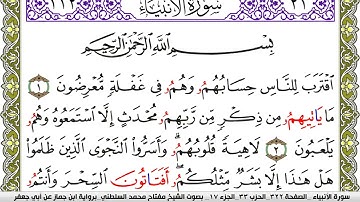 سورة الأنبياء
بِسْمِ اللَّهِ الرَّحْمَٰنِ الرَّحِيمِ
اقْتَرَبَ لِلنَّاسِ حِسَابُهُمُ وَهُمُ فِي غَفْلَةٍ مُعْرِضُونَ ١
مَا يَاتِيهِمُ مِن ذِكْرٍ مِن رَبِّهِمُ مُحْدَثٍ إِلَّا اسْتَمَعُوهُ وَهُمُ
يَلْعَبُونَ ٢ لَاهِيَةً قُلُوبُهُمُ وَأَسَرُّوا النَّجْوَى الَّذِينَ ظَلَمُوا
هَلْ هَٰذَا إِلَّا بَشَرٌ مِثْلُكُمُ أَفَتَاتُونَ السِّحْرَ وَأَنتُمُ
سورة الأنبياء الصفحة ٣٢٢ الحزب ٣٣ الجزء ١٧ بصوت الشيخ مفتاح محمد السلطني برواية ابن جماز عن أبي جعفر